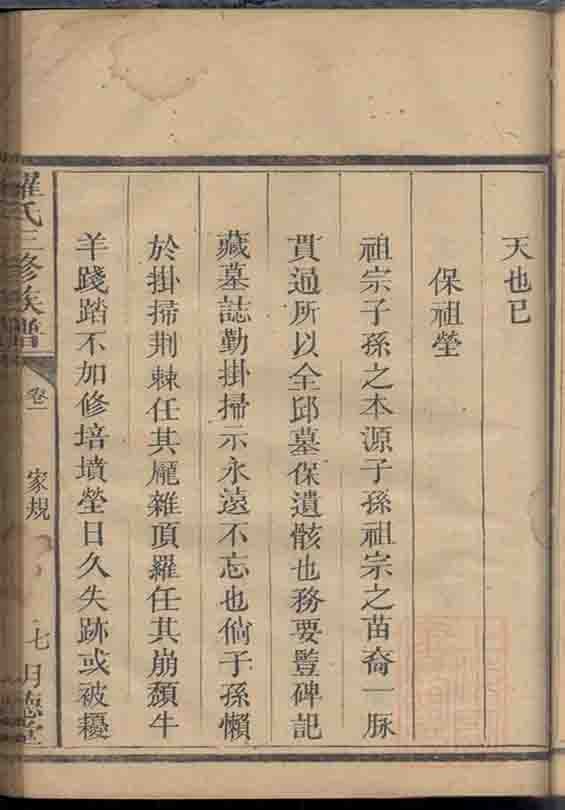 天也已
保祖塋
祖宗子孫之本源子孫祖宗之苗裔一脉
貫通所以全邱墓保遺骸也務要豎碑記
藏墓誌勤掛掃示永遠不忘也倘子孫懶
於掛掃荆棘任其厖雜頂羅任其崩頹牛
羊踐踏不加修培墳塋日久失跡或被耰
羅氏三修族譜 卷一 家規 七 明德堂